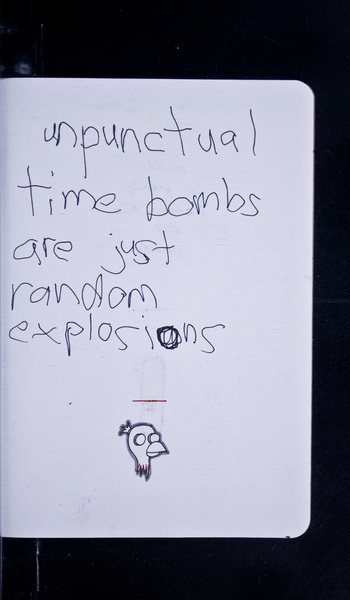 unpunctual
time bombs
are just
random
explosions